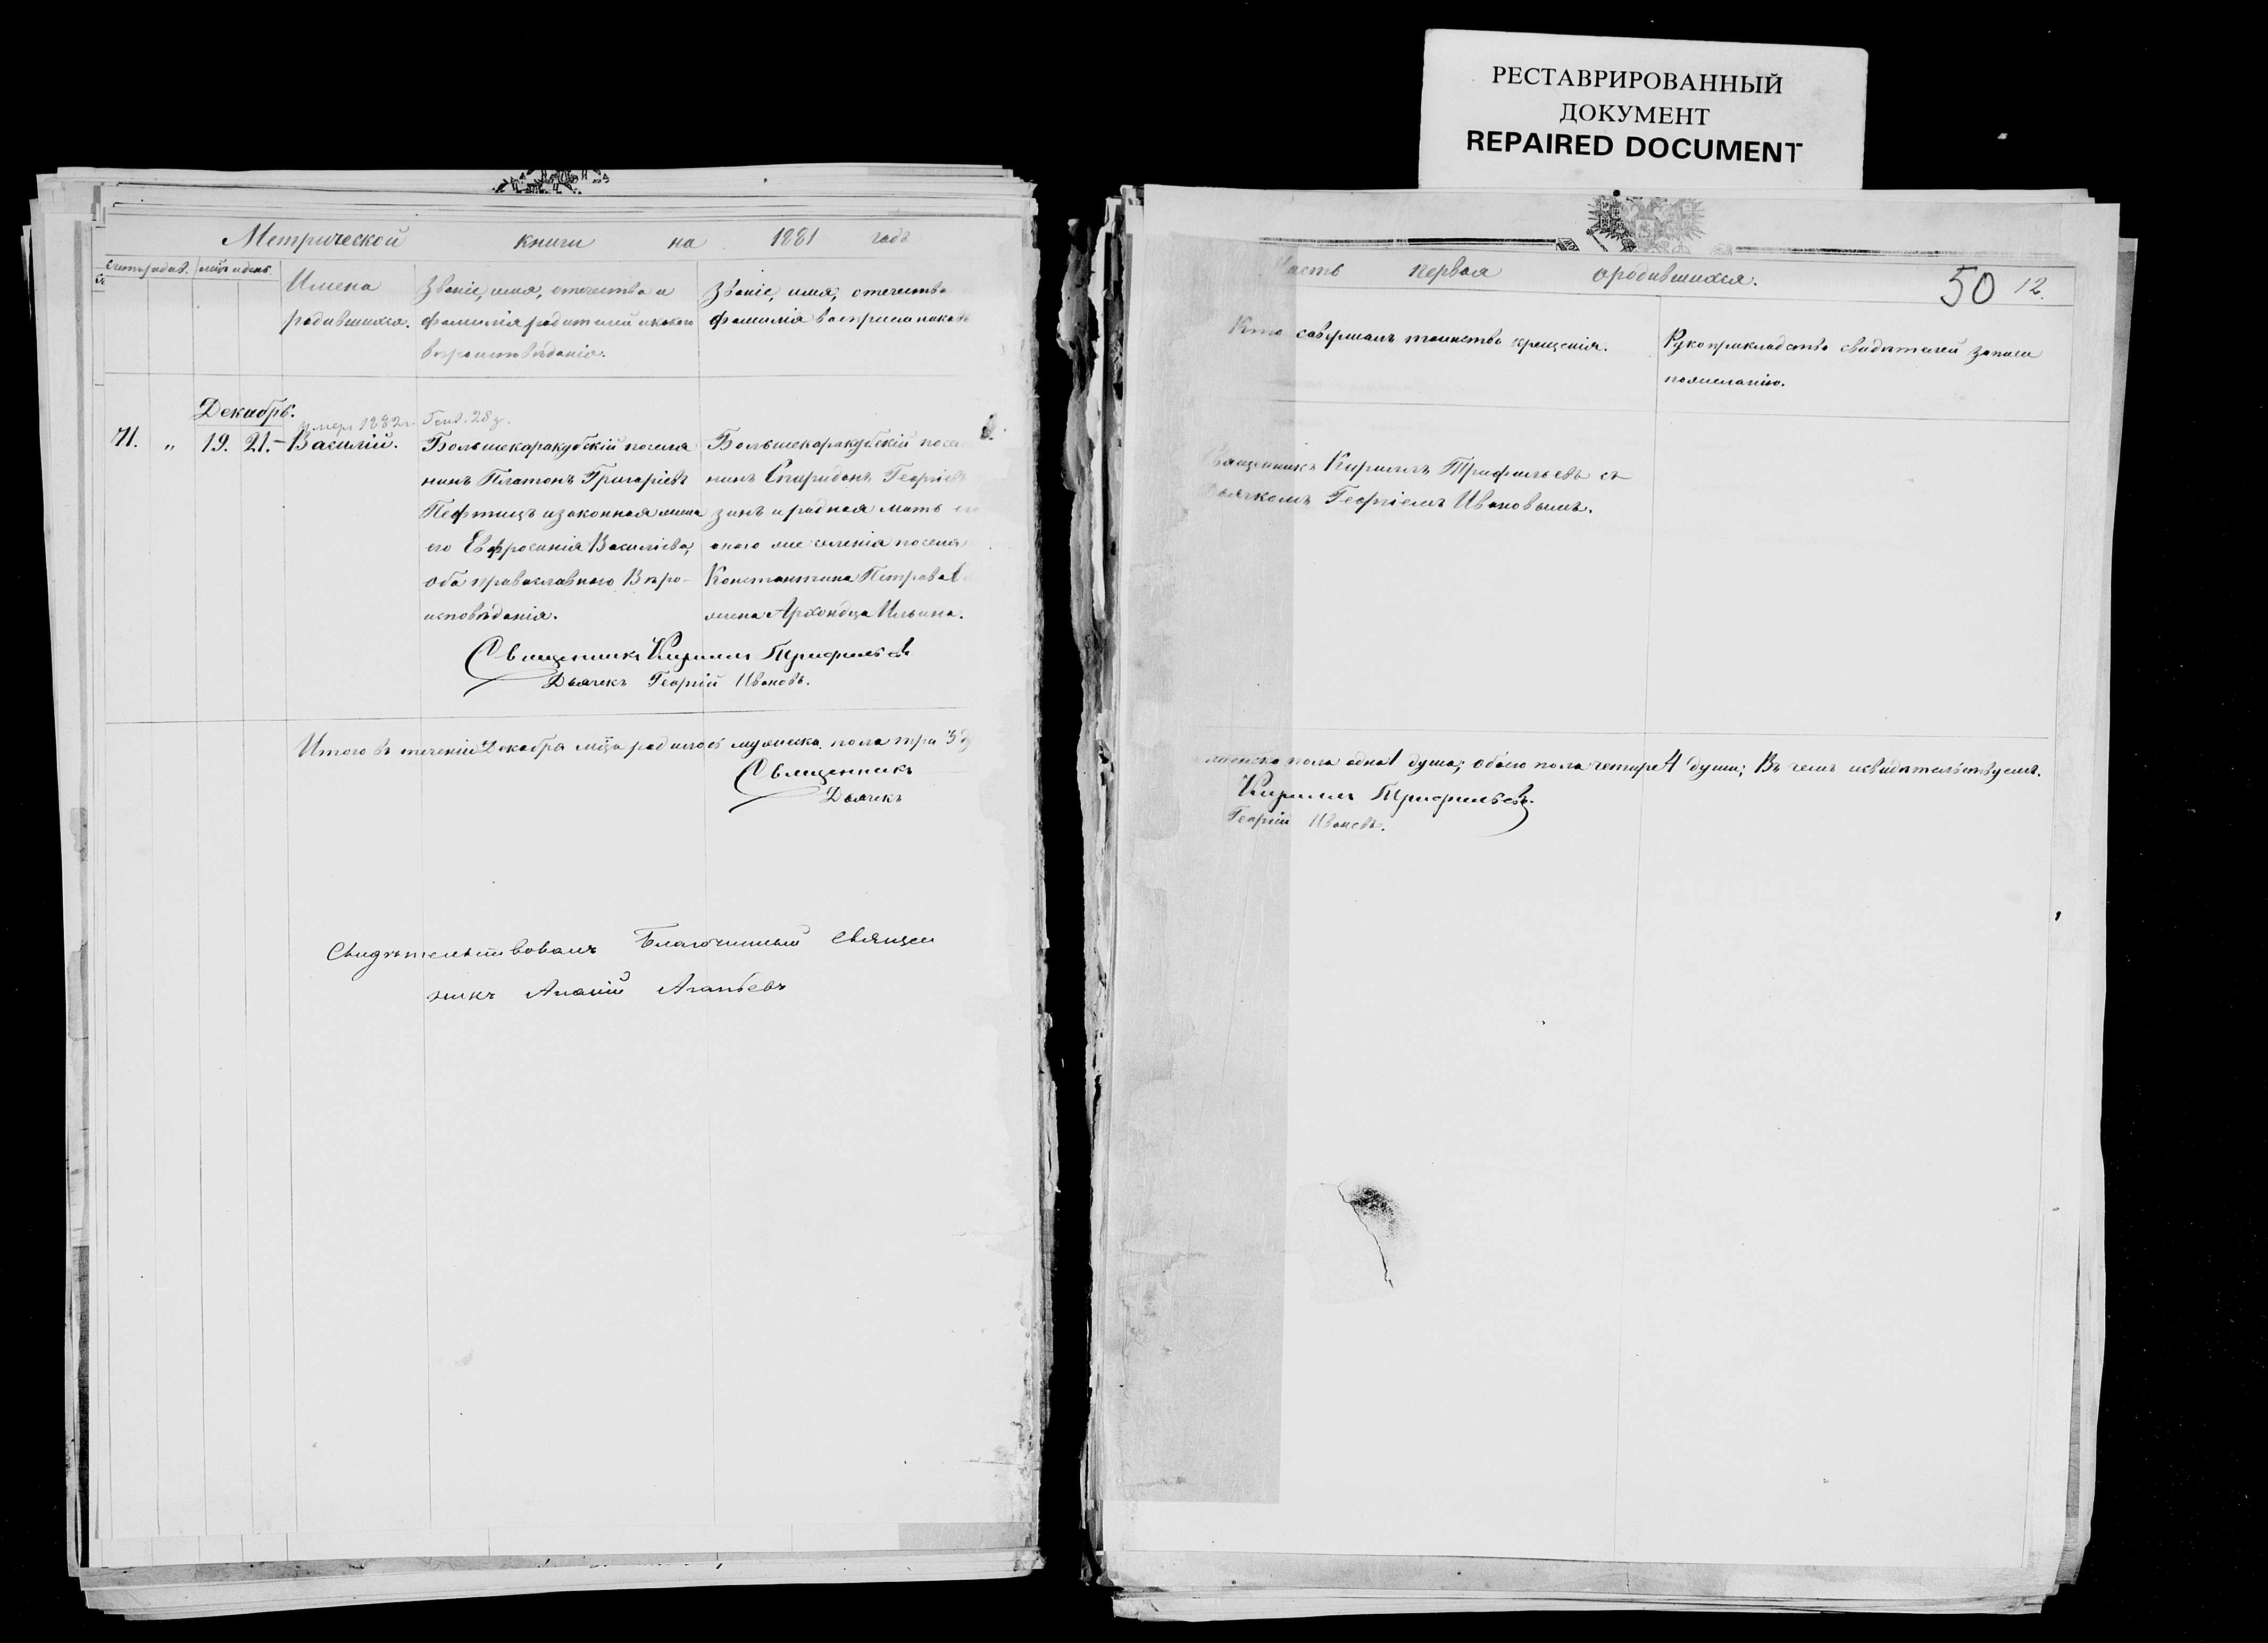 РЕСТАВРИРОВАННЫЙ
ДОКУМЕНТ
REPAIRED DOCUMENT
Метрической книги на 1881 годъ
Счетъ родив. мѣс. и день.
Имена
родившихся.
Званіе, имя, отечество и
фамилія родителей и какого
вѣроисповѣданія.
Званіе, имя, отечество
фамилія воспріемниковъ
Декабрь.
умеръ 1882 г. Генв. 28 д.
71. „ 19. 21. Василій.
Большекаракубскій поселя
нинъ Платонъ Григоріевъ
Пефтицъ и законная жена
его Евфросинія Василіева,
оба православнаго Вѣро-
исповѣданія.
Большекаракубскій посе
нинъ Спиридонъ Георгіевъ
зинъ и родная мать его
онаго же селенія поселя
Константина Петрова
жена Архондца Ильина.
Священникъ Кириллъ Трифильевъ
Дьячекъ Георгій Ивановъ.
Итого въ теченіи Декабря мѣца родилось мужеска пола три 3 д
Священникъ
Дьячекъ
Свидѣтельствовалъ Благочинный Священ
никъ Ананій Агапьевъ
Часть первая о родившихся. 50 12.
Кто совершалъ таинство крещенія.
Рукоприкладство свидѣтелей записи
по желанію.
Священникъ Кириллъ Трифильевъ съ
Дьячкомъ Георгіемъ Ивановымъ.
женска пола одна 1 душа; обоего пола четыре 4 души; Въ чемъ и свидѣтельствуемъ.
Кириллъ Трифильевъ.
Георгій Ивановъ.